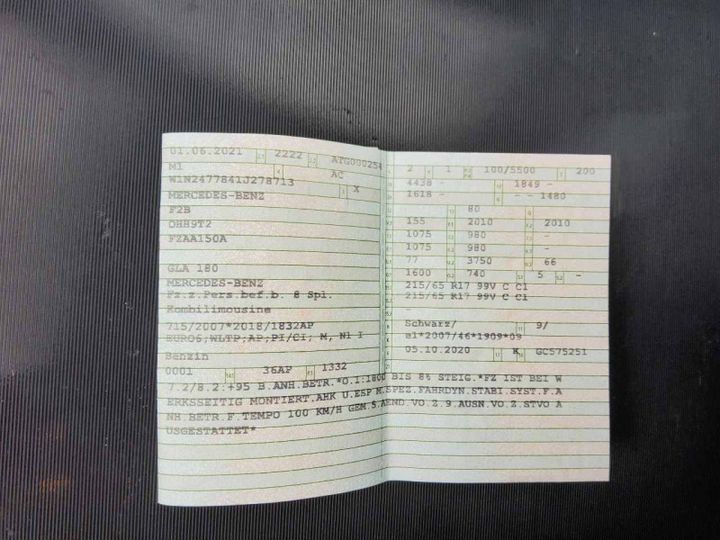 01.06.2021 2222 ATG000254
M1 AC
W1N2477841J278713 X
MERCEDES-BENZ
F2B
OHH9T2
FZAA150A
GLA 180
MERCEDES-BENZ
Fz.z.Pers.bef.b. 8 Spl.
Kombilimousine
715/2007*2018/1832AP
EURO6;WLTP;AP;PI/CI; M, N1 I
Benzin
0001 36AP 1332
2 1 100/5500 200
4438 - 1849 -
1618 - - - 1480
80
155 2010 2010
1075 980 -
1075 980 -
77 3750 66
1600 740 5 -
215/65 R17 99V C C1
215/65 R17 99V C C1
-
Schwarz/ 9/
e1*2007/46*1909*09
05.10.2020 K GC575251
7.2/8.2:+95 B.ANH.BETR.*O.1:1800 BIS 8% STEIG.*FZ IST BEI W
ERKSSEITIG MONTIERT.AHK U.ESP M.SPEZ.FAHRDYN.STABI.SYST.F.A
NH BETR.F.TEMPO 100 KM/H GEM.5.AEND.VO.Z.9 AUSN.VO.Z.STVO A
USGESTATTET*